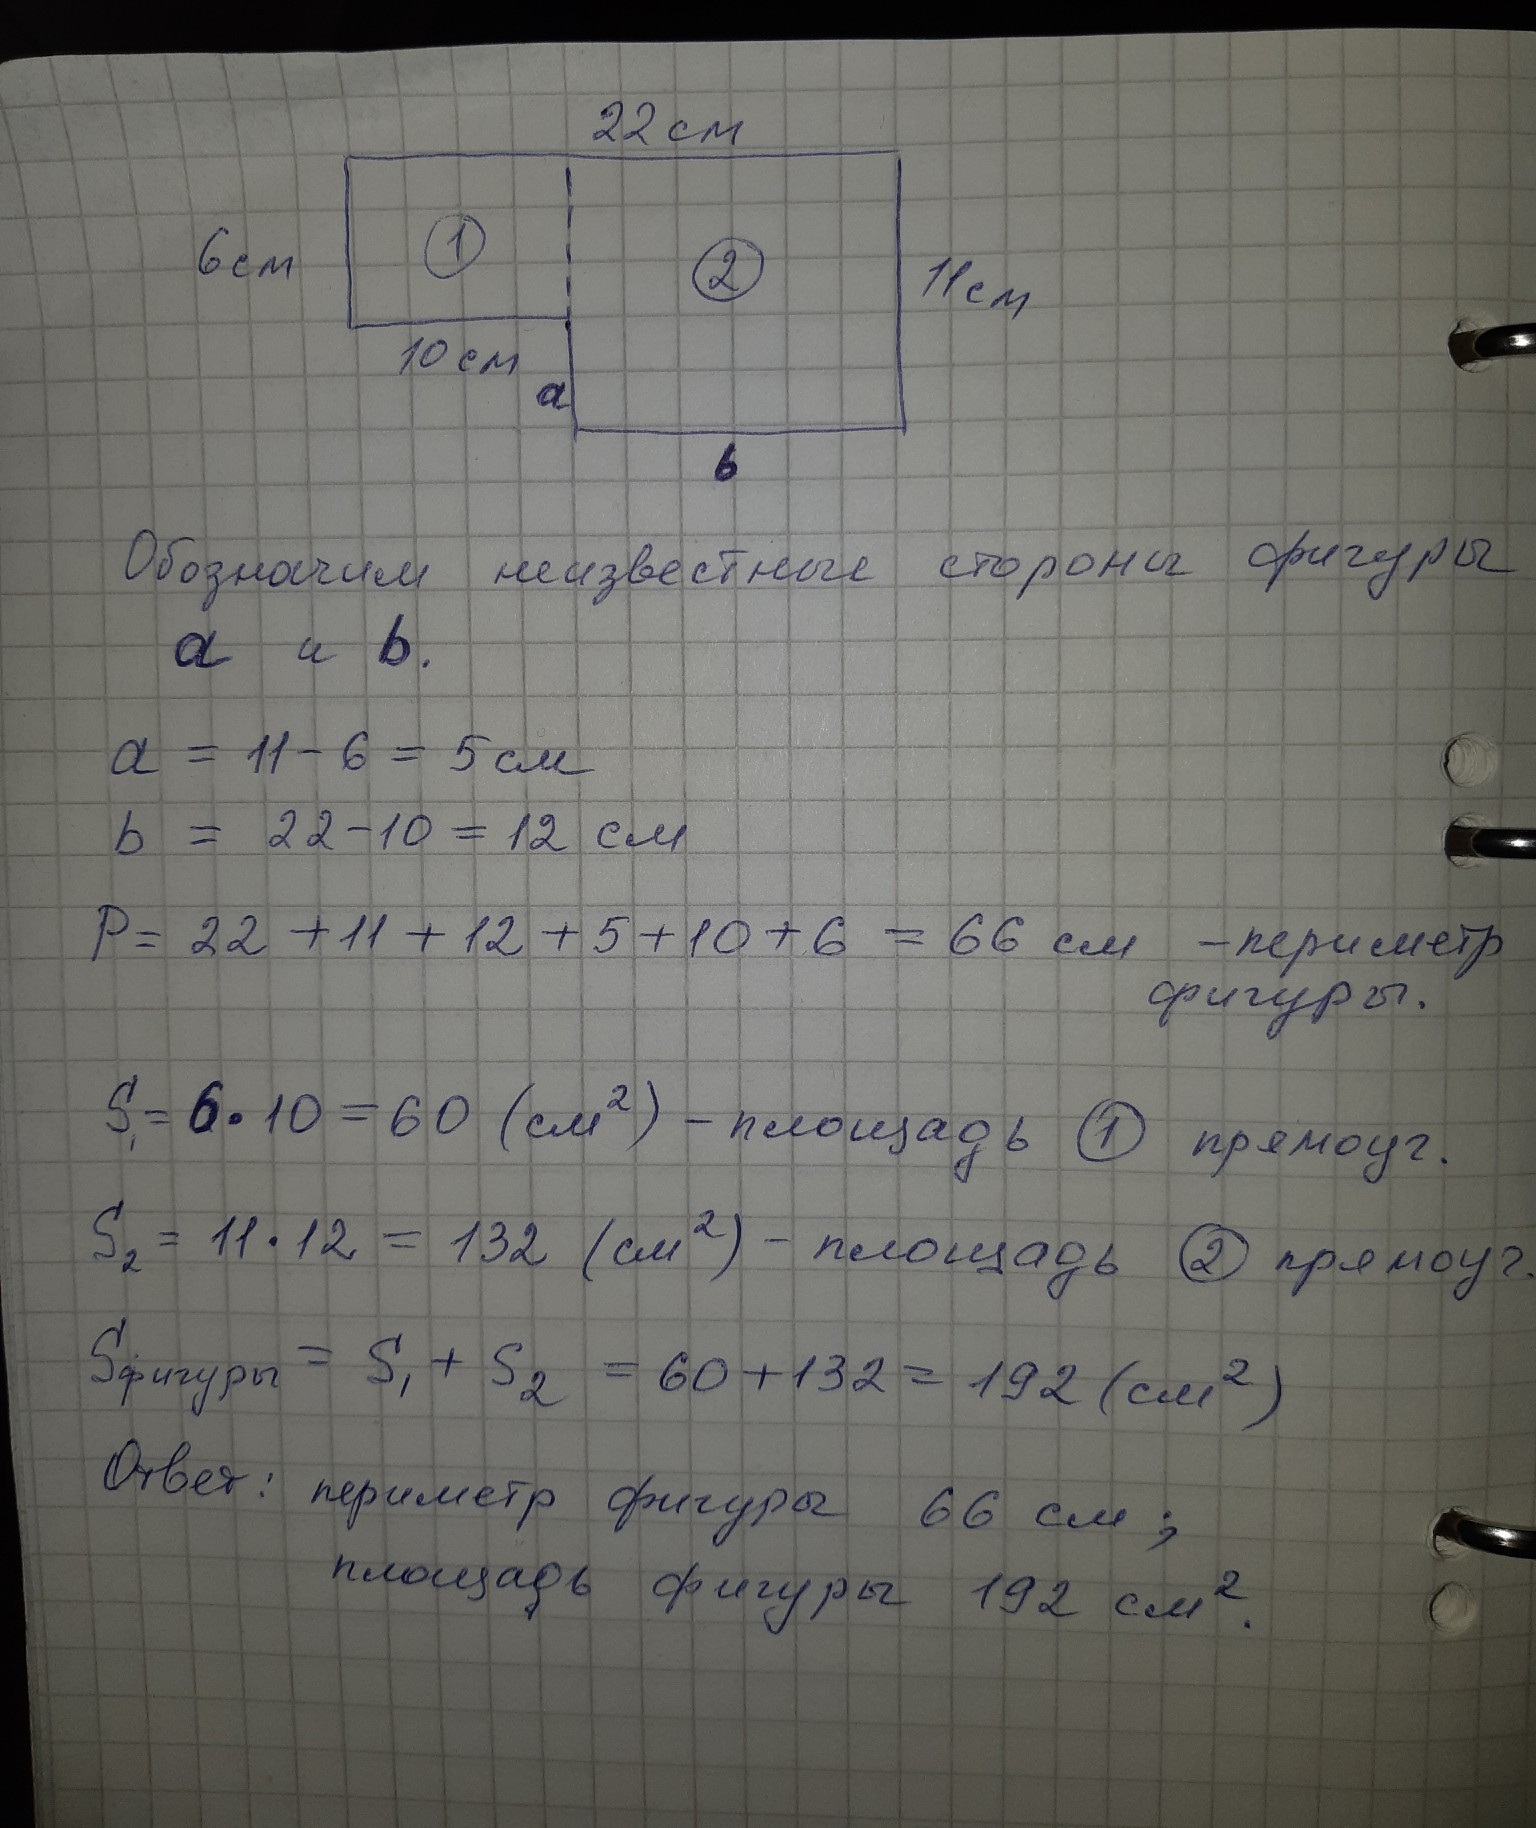 22 см
6 см
1
2
11 см
10 см
a
b
Обозначим неизвестные стороны фигуры
a и b.
a = 11 - 6 = 5 см
b = 22 - 10 = 12 см
P = 22 + 11 + 12 + 5 + 10 + 6 = 66 см - периметр
фигуры.
S₁ = 6 · 10 = 60 (см²) - площадь ① прямоуг.
S₂ = 11 · 12 = 132 (см²) - площадь ② прямоуг.
Sфигуры = S₁ + S₂ = 60 + 132 = 192 (см²)
Ответ: периметр фигуры 66 см;
площадь фигуры 192 см².